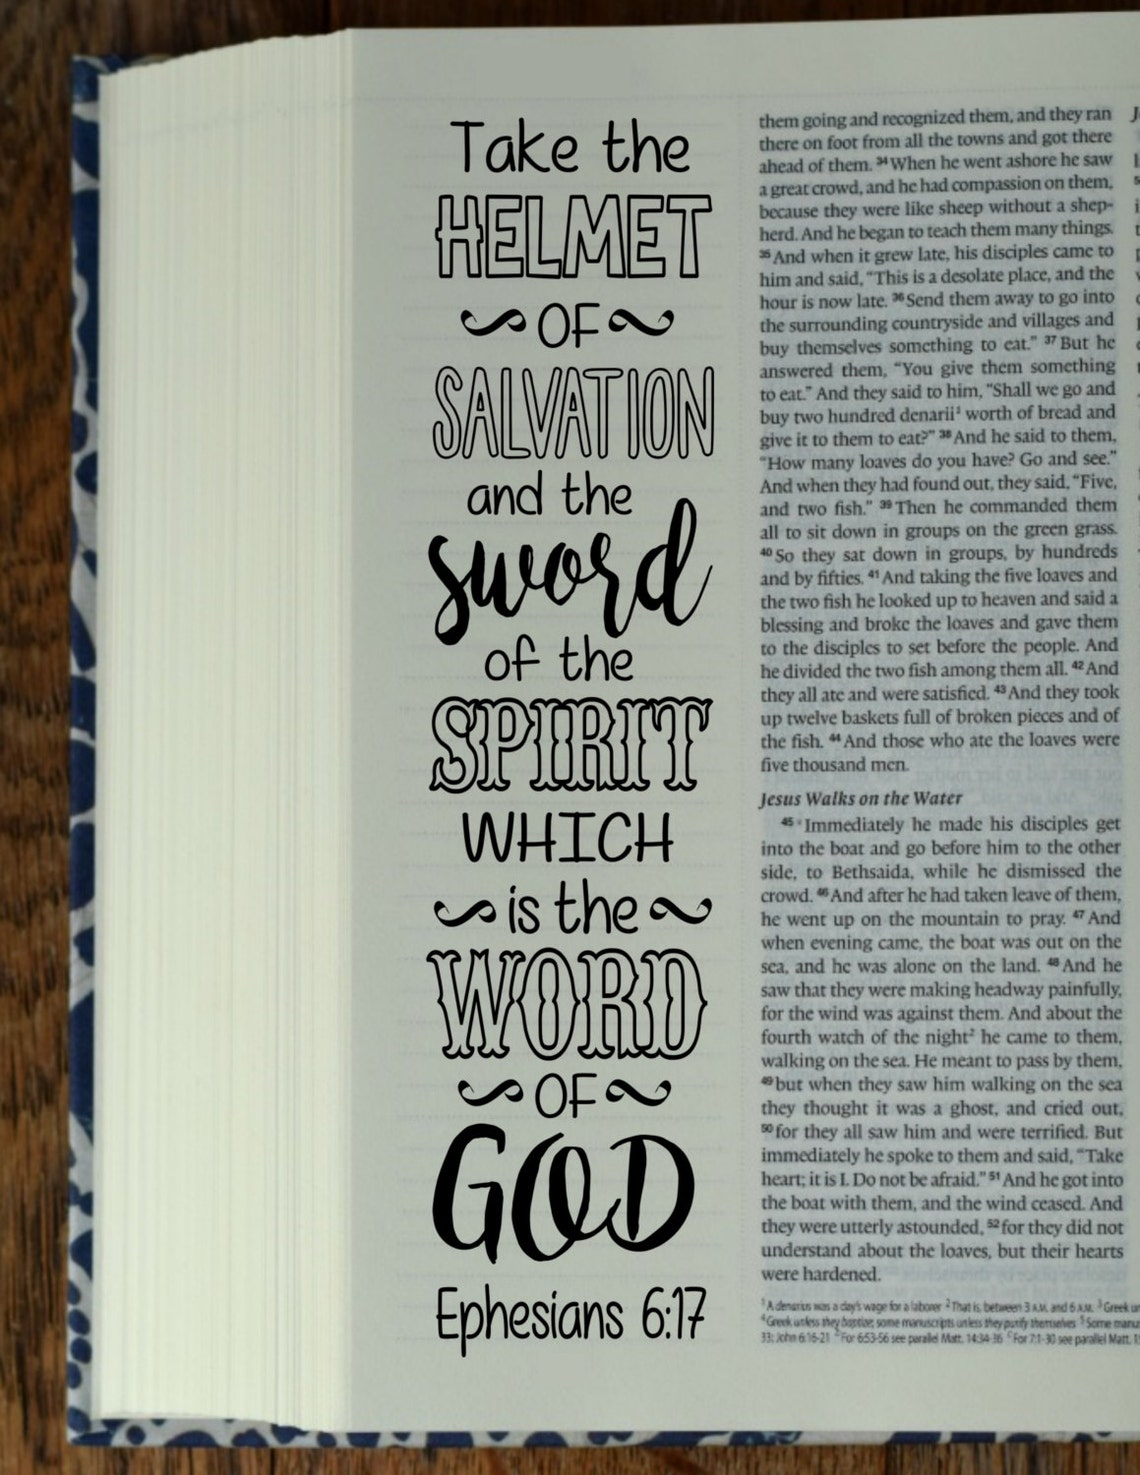 Take the
HELMET
OF
SALVATION
and the
sword
of the
SPIRIT
WHICH
is the
WORD
OF
GOD
Ephesians 6:17
them going and recognized them, and they ran
there on foot from all the towns and got there
ahead of them. 34 When he went ashore he saw
a great crowd, and he had compassion on them,
because they were like sheep without a shep-
herd. And he began to teach them many things.
35 And when it grew late, his disciples came to
him and said, “This is a desolate place, and the
hour is now late. 36 Send them away to go into
the surrounding countryside and villages and
buy themselves something to eat.” 37 But he
answered them, “You give them something
to eat.” And they said to him, “Shall we go and
buy two hundred denarii¹ worth of bread and
give it to them to eat?” 38 And he said to them,
“How many loaves do you have? Go and see.”
And when they had found out, they said, “Five,
and two fish.” 39 Then he commanded them
all to sit down in groups on the green grass.
40 So they sat down in groups, by hundreds
and by fifties. 41 And taking the five loaves and
the two fish he looked up to heaven and said a
blessing and broke the loaves and gave them
to the disciples to set before the people. And
he divided the two fish among them all. 42 And
they all ate and were satisfied. 43 And they took
up twelve baskets full of broken pieces and of
the fish. 44 And those who ate the loaves were
five thousand men.
Jesus Walks on the Water
45 Immediately he made his disciples get
into the boat and go before him to the other
side, to Bethsaida, while he dismissed the
crowd. 46 And after he had taken leave of them,
he went up on the mountain to pray. 47 And
when evening came, the boat was out on the
sea, and he was alone on the land. 48 And he
saw that they were making headway painfully,
for the wind was against them. And about the
fourth watch of the night² he came to them,
walking on the sea. He meant to pass by them,
49 but when they saw him walking on the sea
they thought it was a ghost, and cried out,
50 for they all saw him and were terrified. But
immediately he spoke to them and said, “Take
heart; it is I. Do not be afraid.” 51 And he got into
the boat with them, and the wind ceased. And
they were utterly astounded, 52 for they did not
understand about the loaves, but their hearts
were hardened.
¹ A denarius was a day's wage for a laborer ² That is, between 3 A.M. and 6 A.M. ³ Greek
⁴ Greek unless they baptize; some manuscripts unless they purify themselves ⁵ Some
33; John 6:16-21 For 6:53-56 see parallel Matt. 14:34-36 For 7:1-30 see parallel Matt.